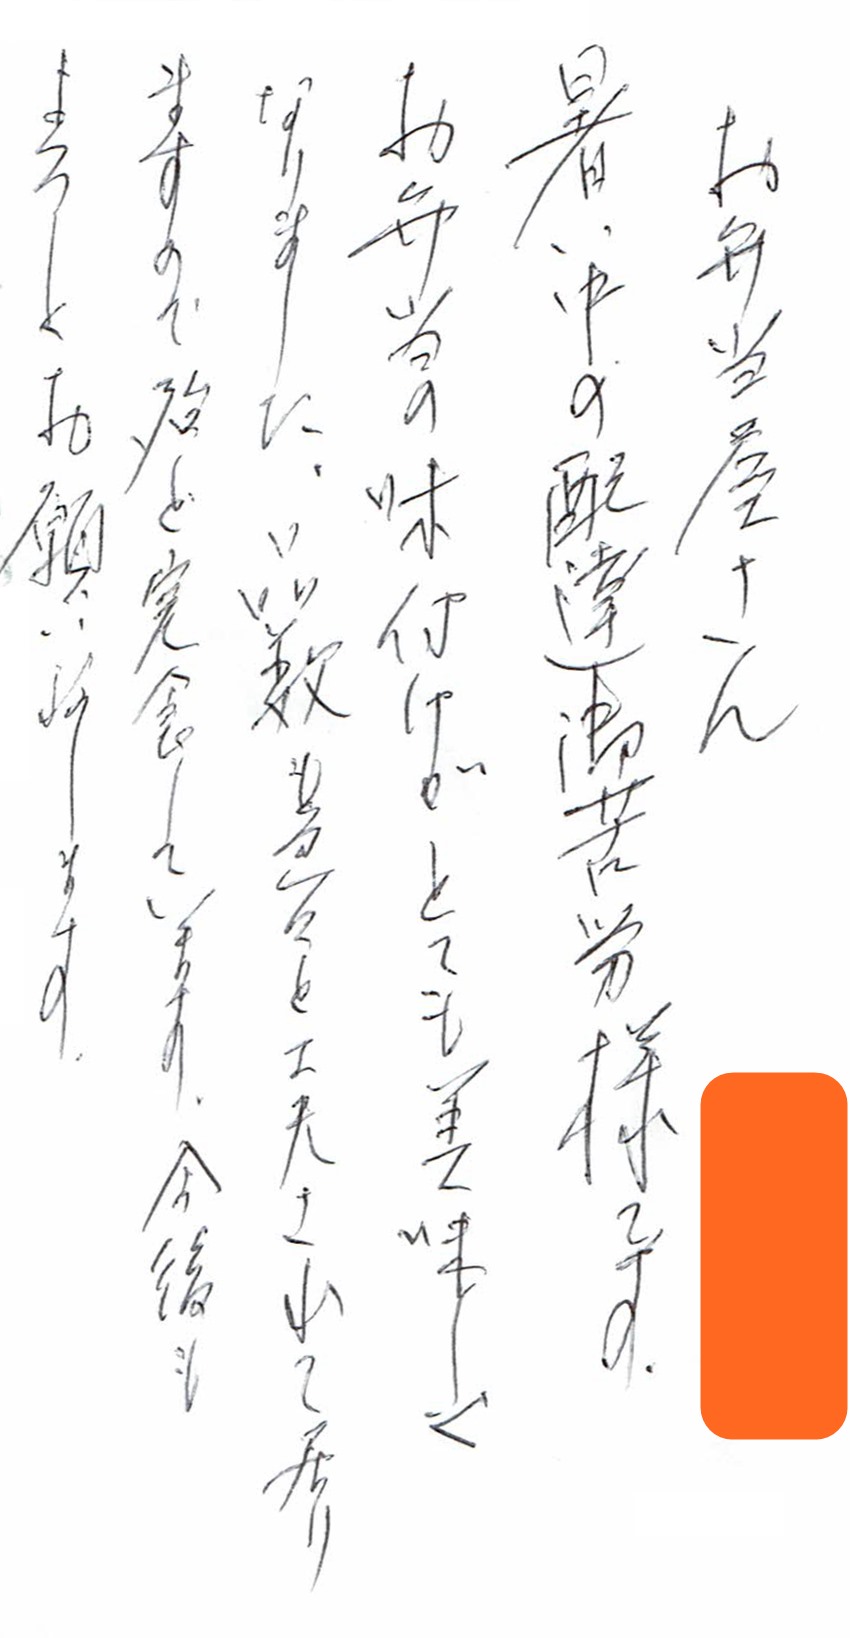 お弁当屋さん
暑い中の配達御苦労様です.
お弁当の味付けがとても美味しく
なりました、品数も色々と工夫されて居り
ますので殆と完食しています. 今後も
よろしくお願い致します.